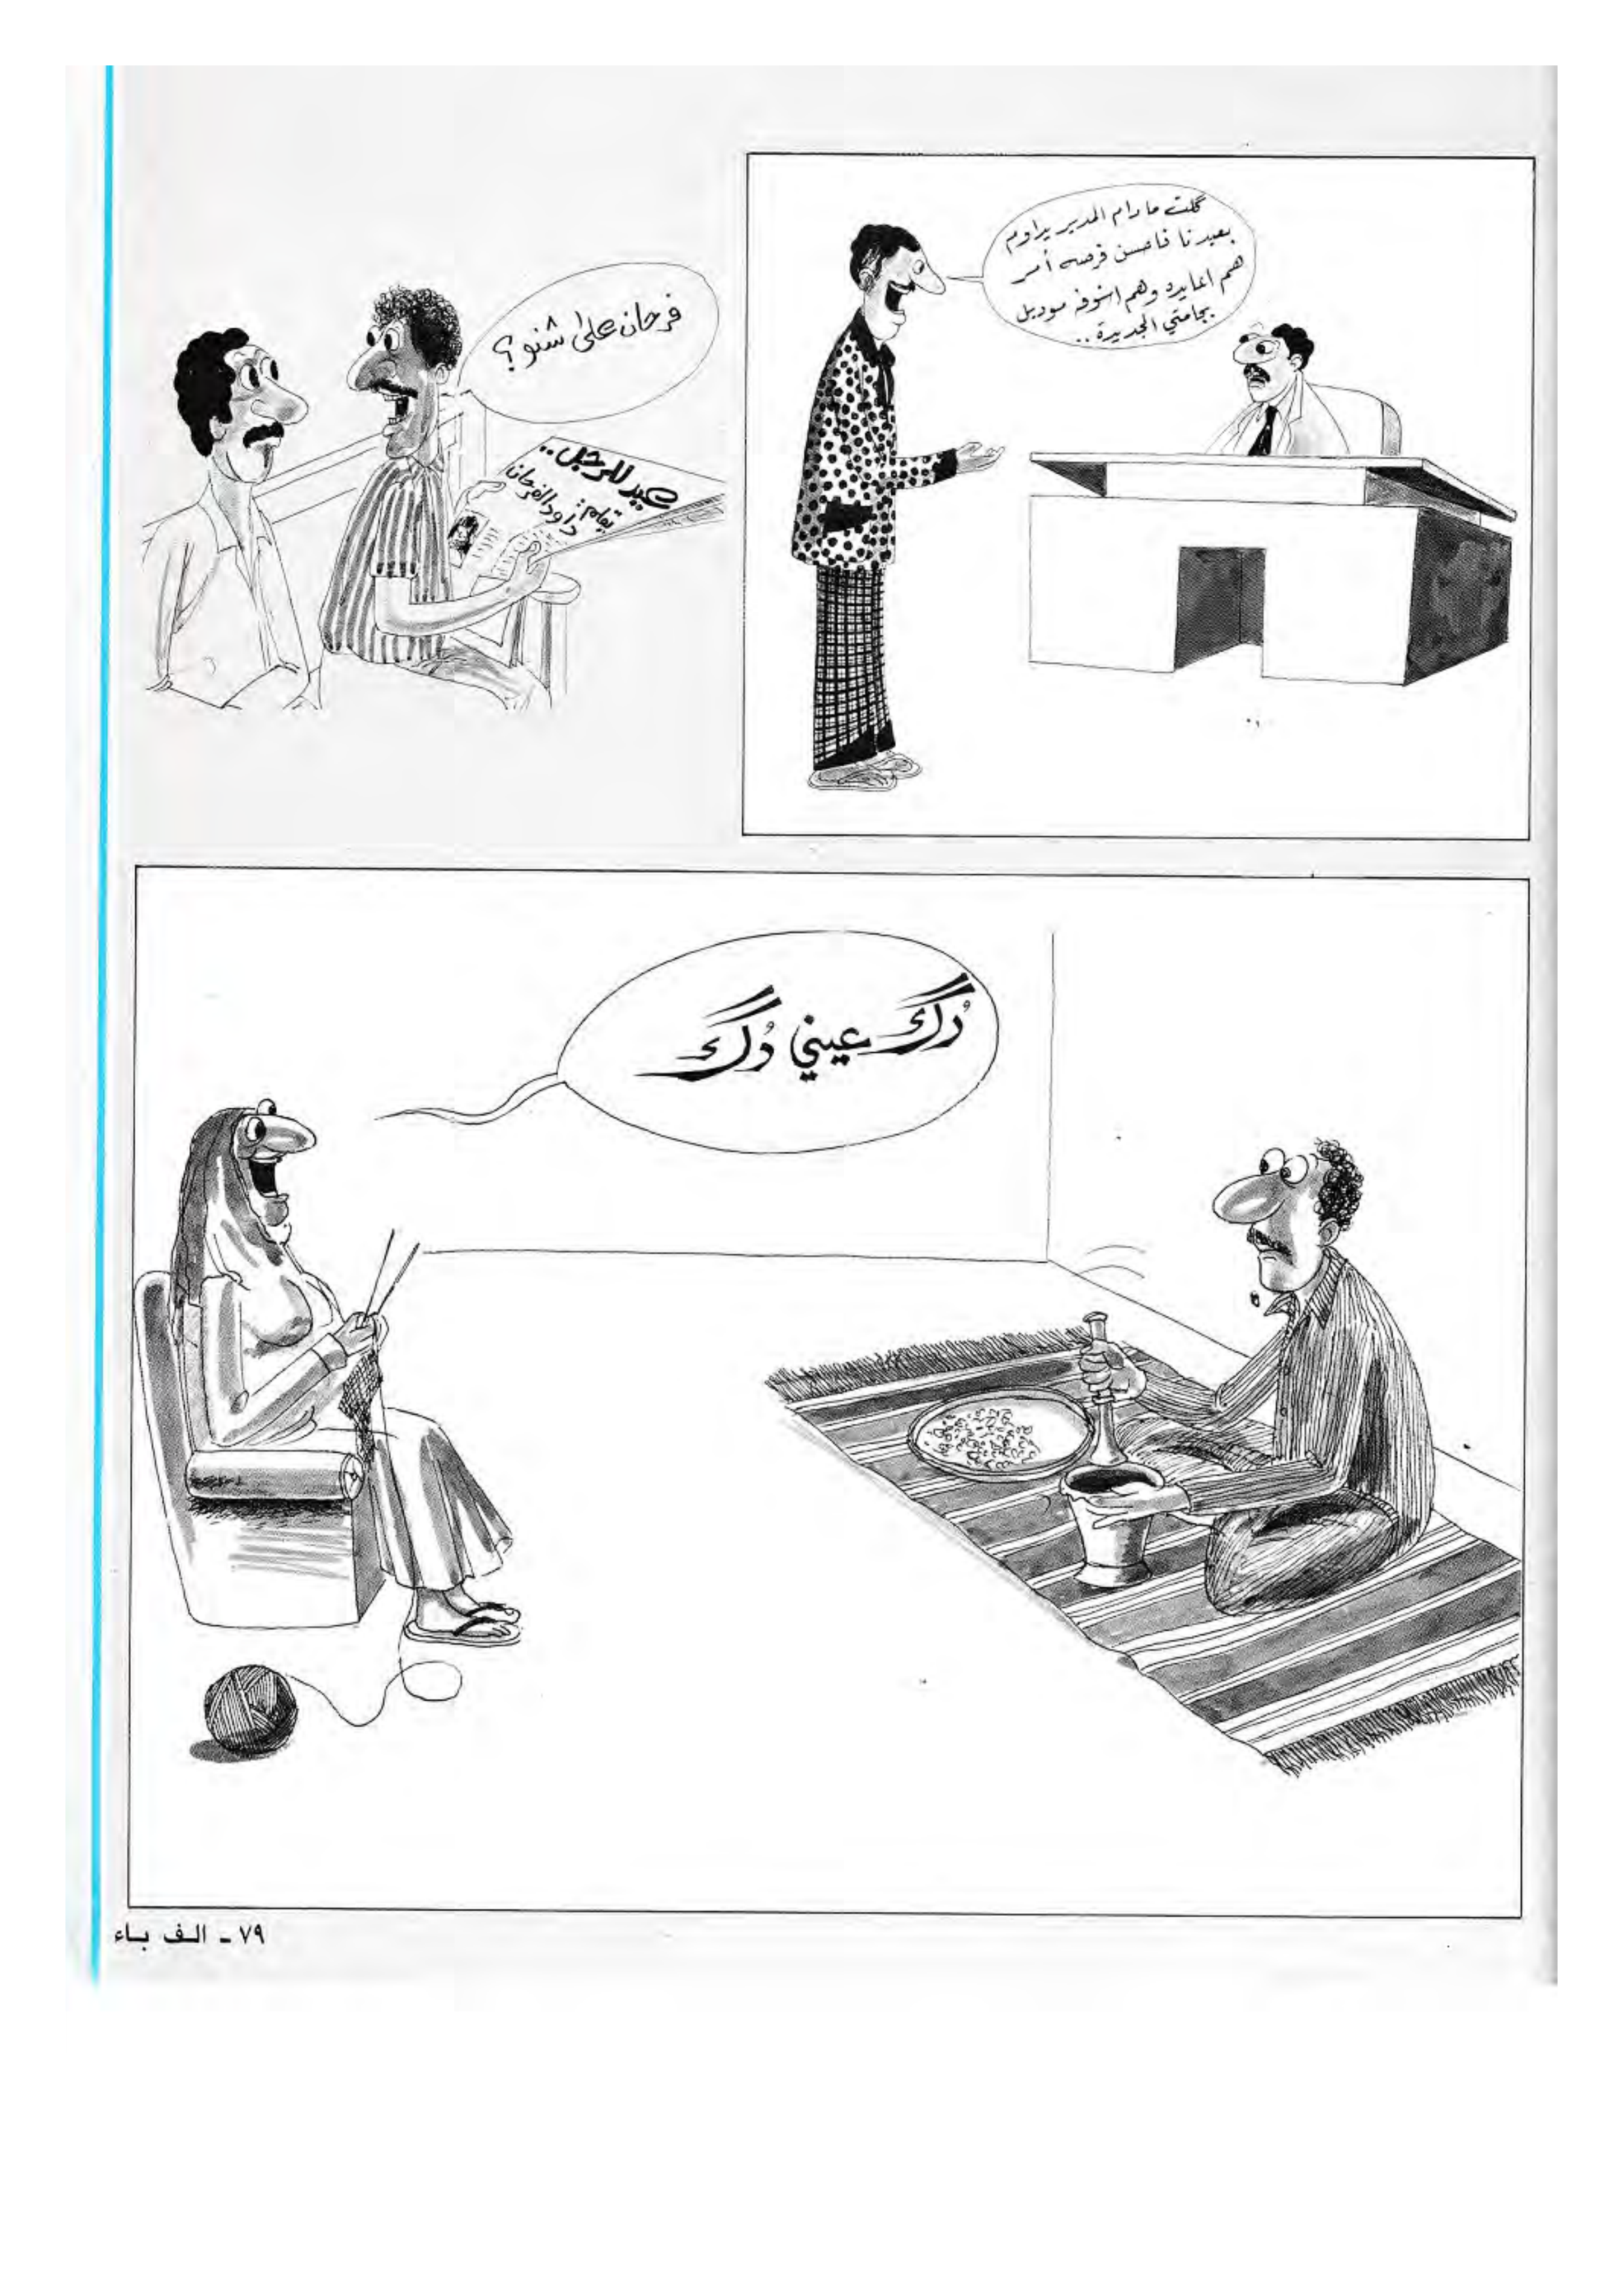 گلت ما دام المدير يداوم
بعيدنا فاحسن فرصه أمر
هم اعايده وهم اشوفه موديل
بجامتي الجديدة ..
فرحان على شنو ؟
عيد للرجل ..
بقلم :
داود الفرحان
دُگ عيني دُگ
٧٩ ـ الف باء